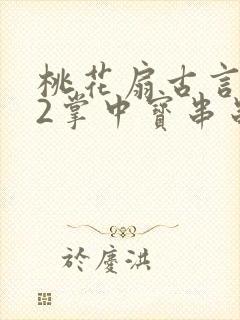 桃花扇古言
2掌中寳串
於慶洪